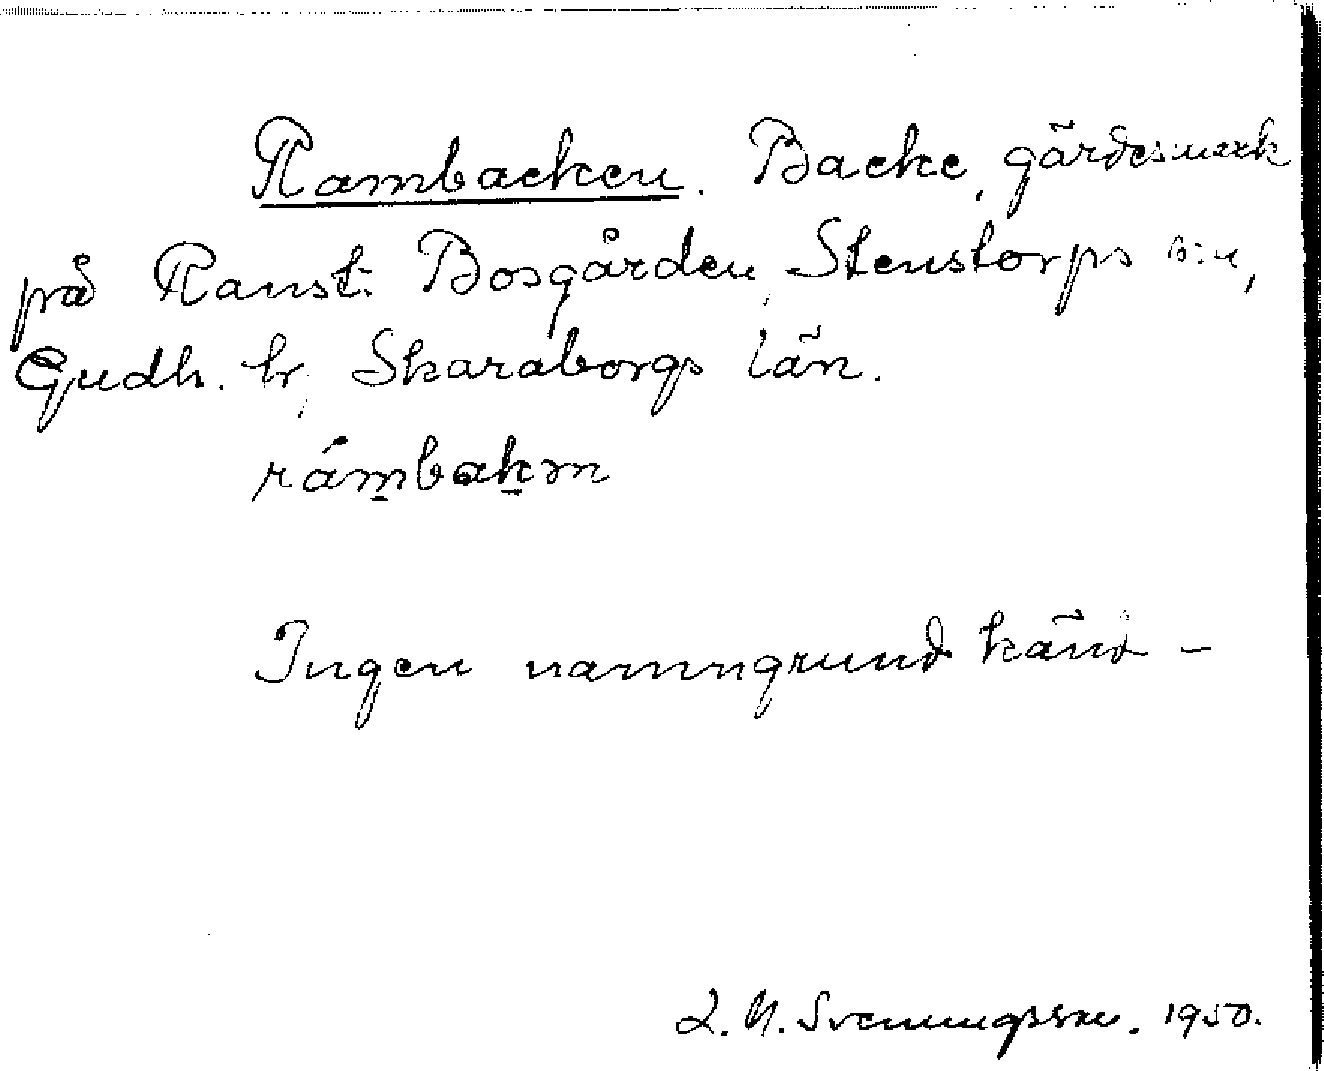 Rambacken. Backe, gärdesmark
på Ranst: Bosgården, Stenstorps s:n,
Gudh. hr, Skaraborgs län.
rámbakən
Ingen namngrund känd –
L. N. Svenungsson. 1950.